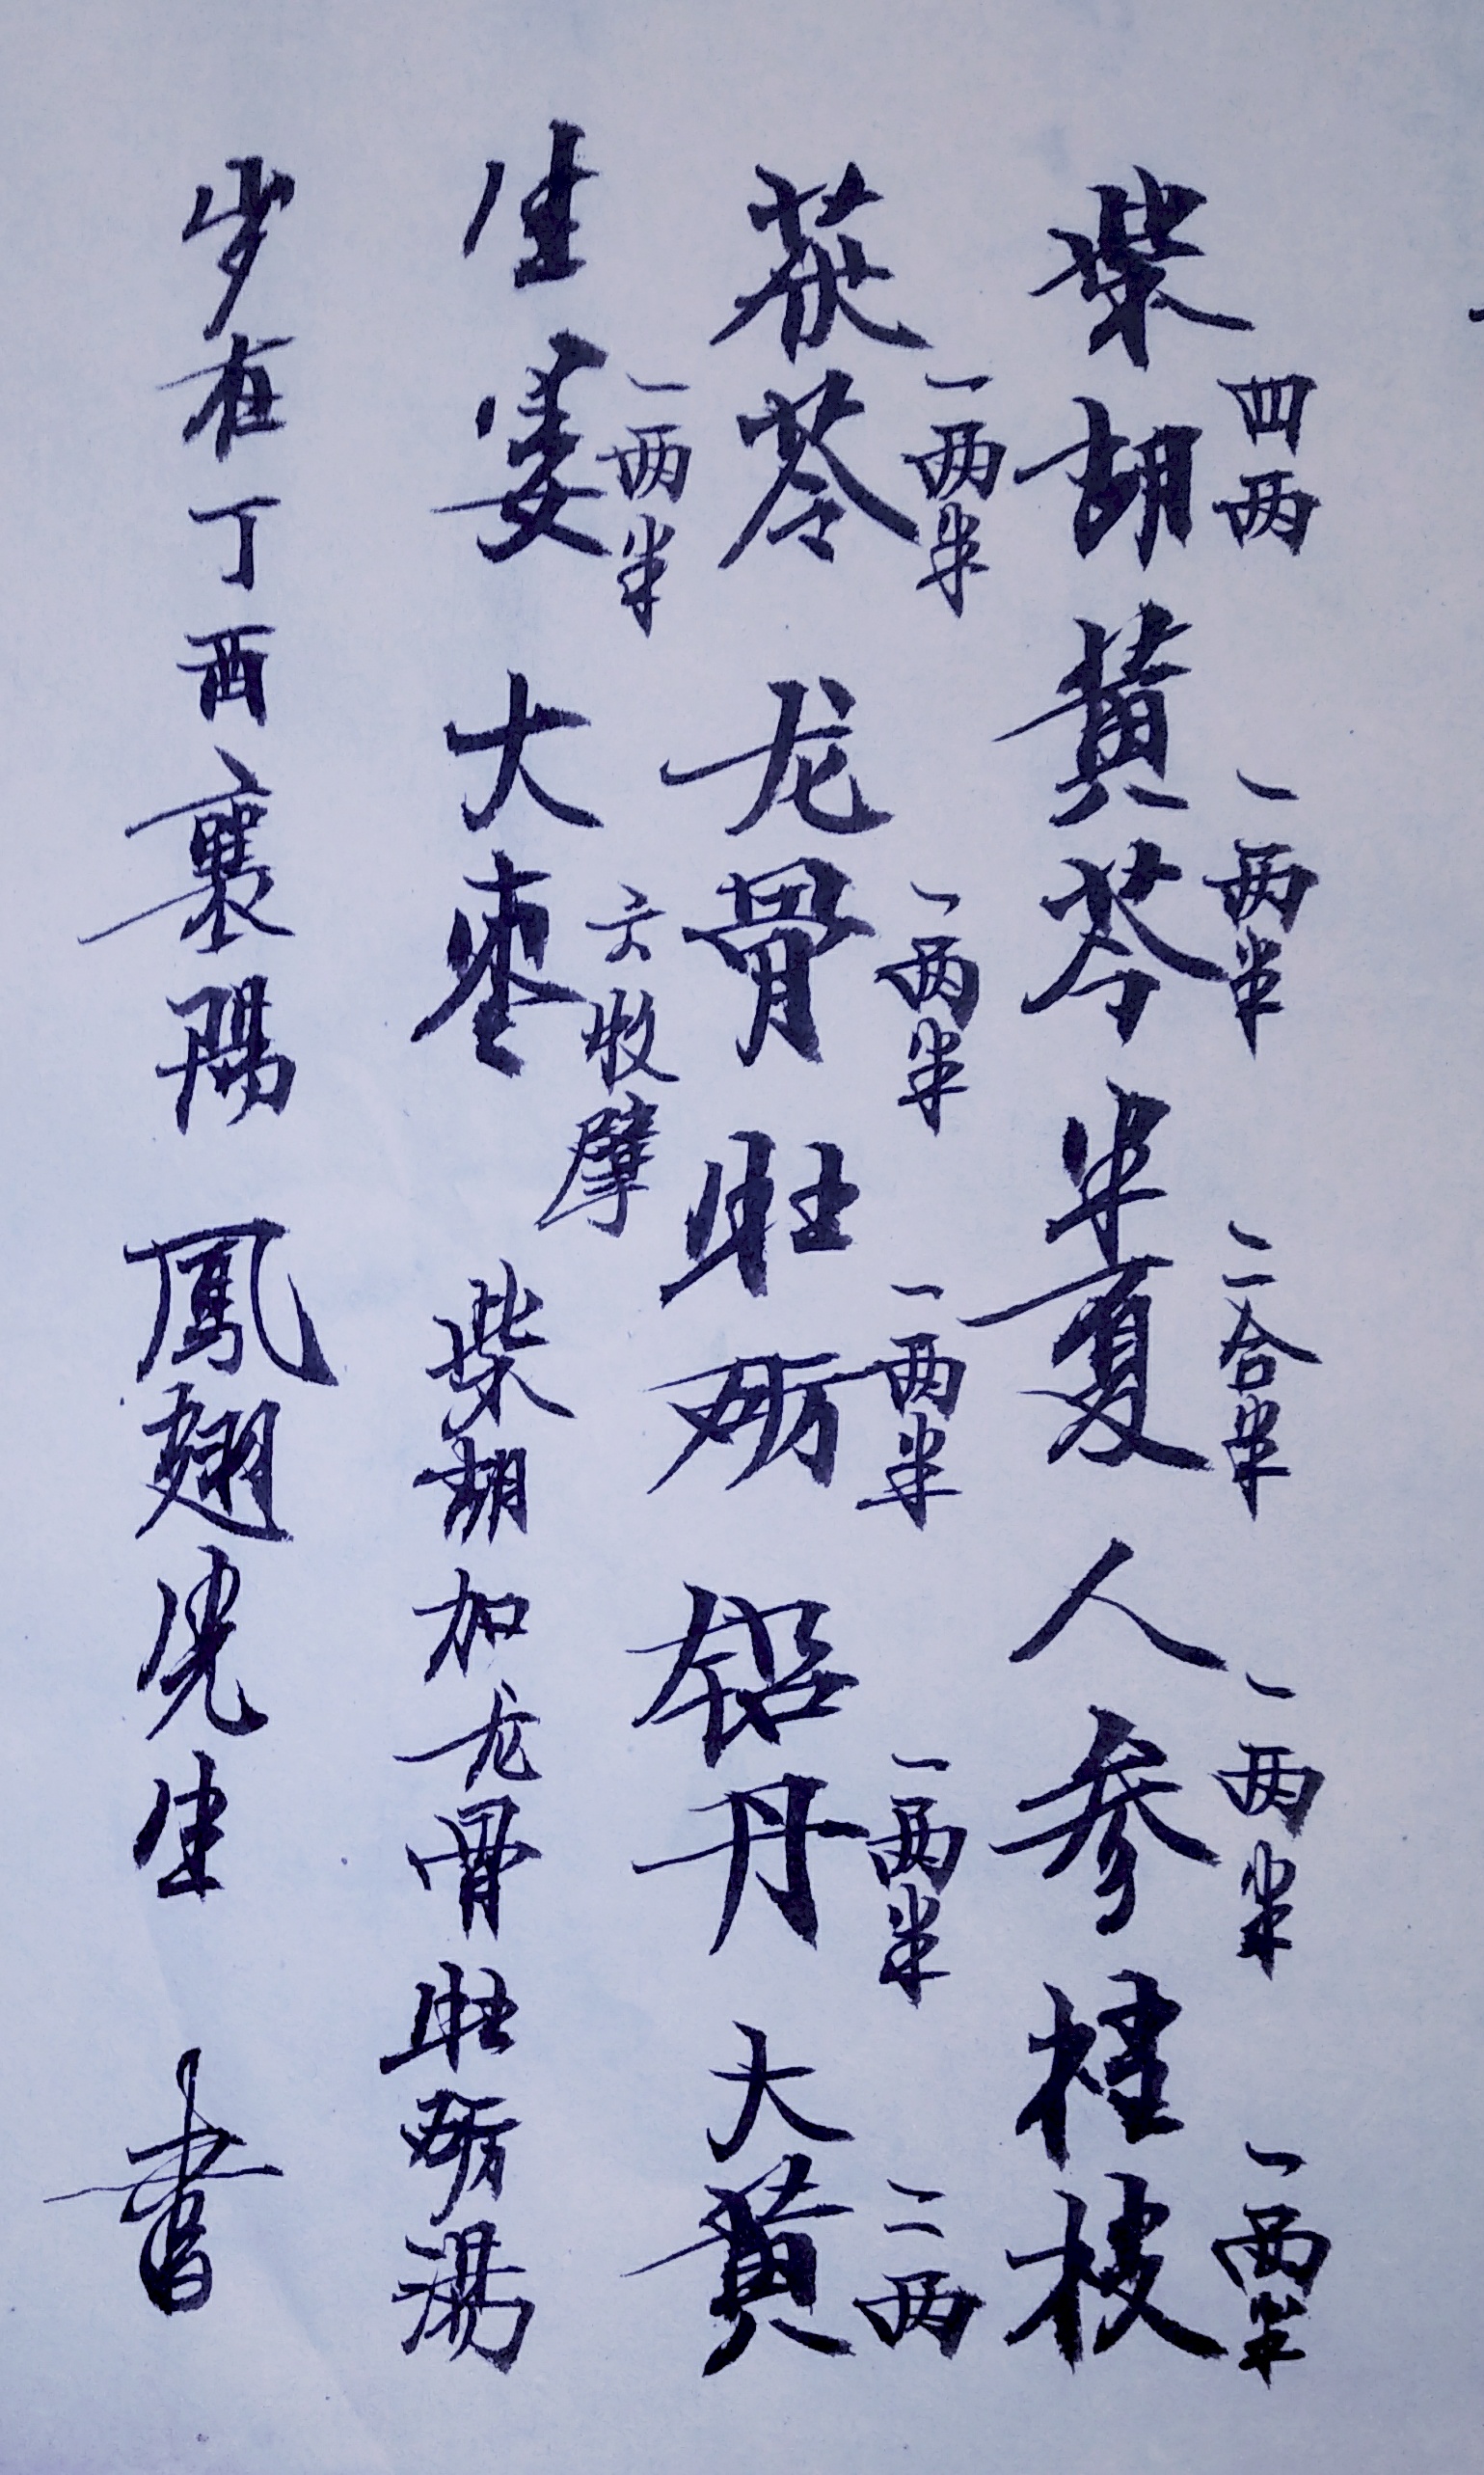 柴胡四两黄芩一两半半夏二合半人参一两半桂枝一两半
茯苓一两半龙骨一两半牡蛎一两半铅丹一两半大黄二两
生姜一两半大枣六枚擘柴胡加龙骨牡蛎湯
岁在丁酉襄陽鳳翅先生書